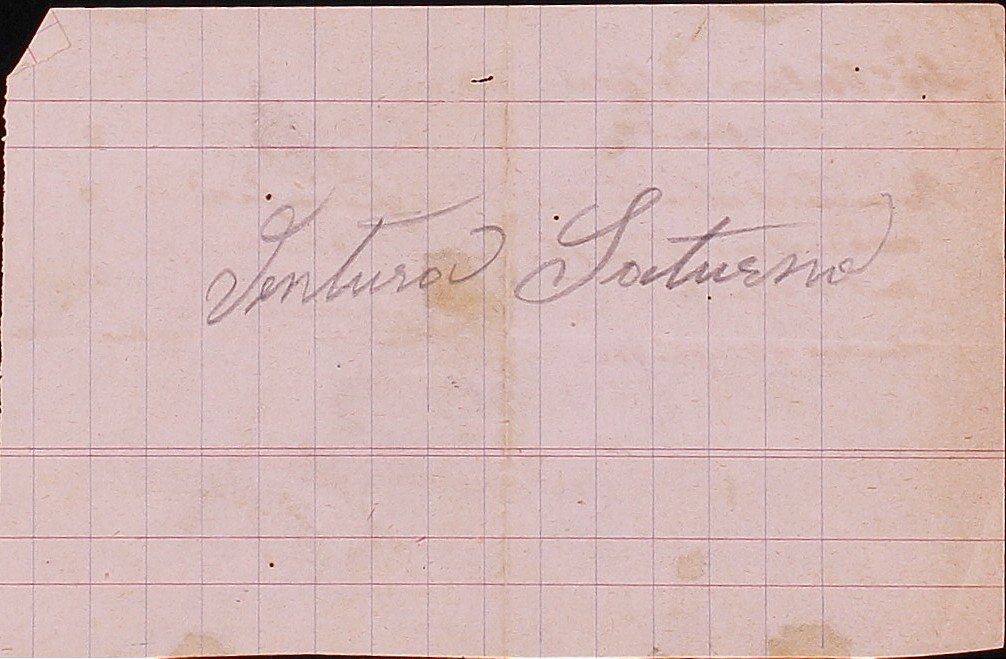 Ventura Saturno